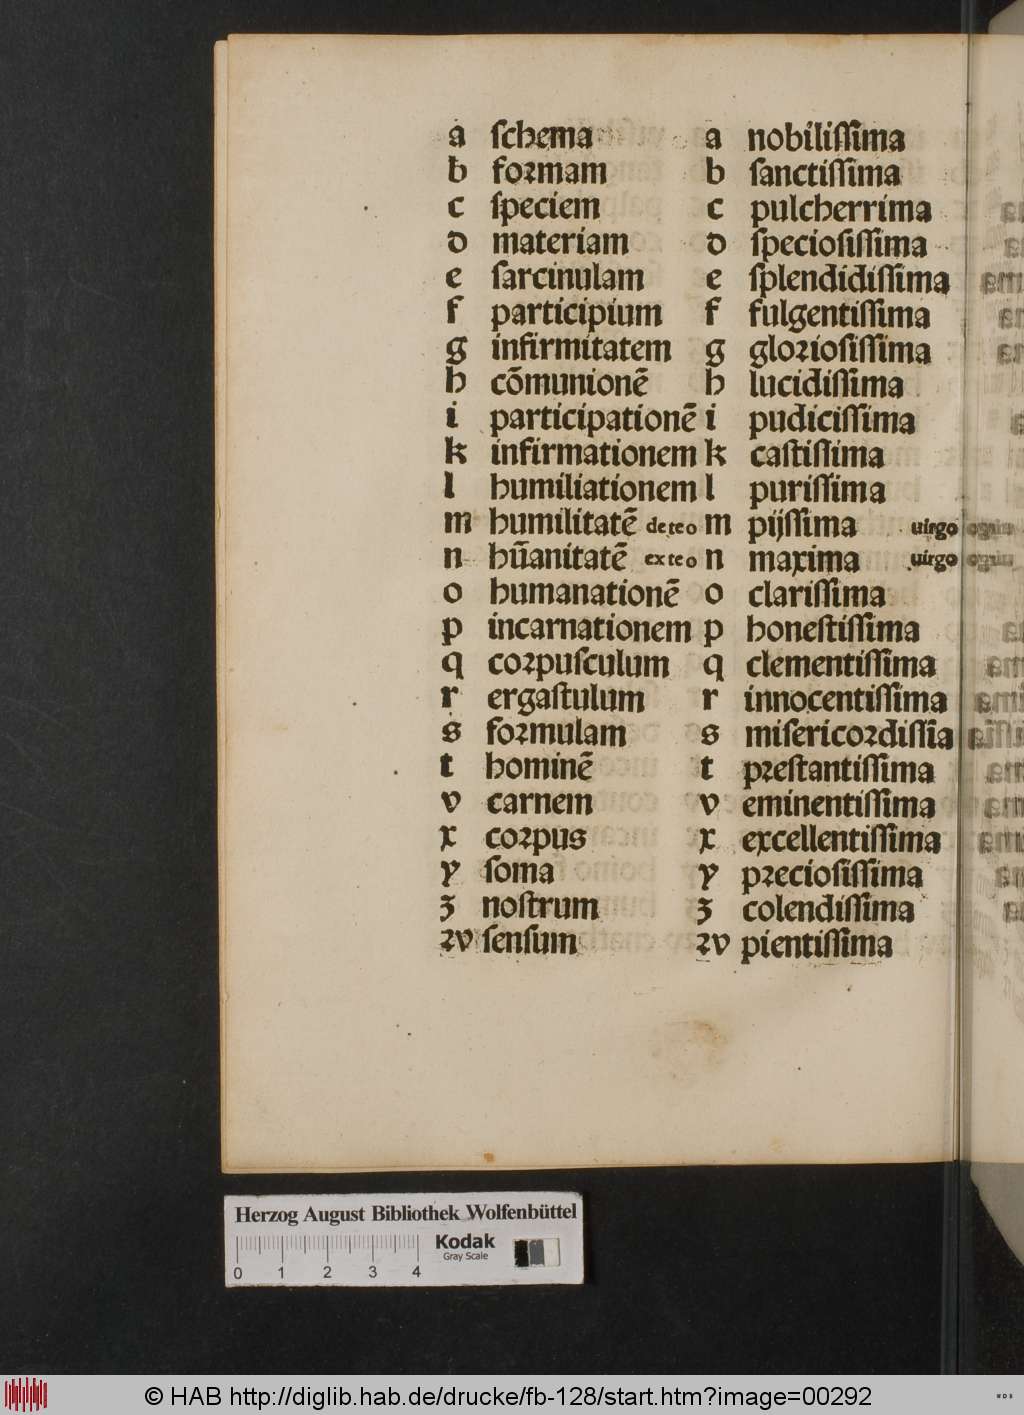 a ſchema a nobiliſſima
b foꝛmam b ſanctiſſima
c ſpeciem c pulcherrima
d materiam d ſpecioſiſſima
e ſarcinulam e ſplendidiſſima
f participium f fulgentiſſima
g infirmitatem g gloꝛioſiſſima
h cōmunionē h lucidiſſima
i participationē i pudiciſſima
k infirmationem k caſtiſſima
l humiliationem l puriſſima
m humilitatē de te o m pijſſima uirgo
n hūanitatē ex te o n maxima uirgo
o humanationē o clariſſima
p incarnationem p honeſtiſſima
q coꝛpuſculum q clementiſſima
r ergaſtulum r innocentiſſima
s foꝛmulam s miſericoꝛdiſſīa
t hominē t pꝛeſtantiſſima
v carnem v eminentiſſima
x coꝛpus x excellentiſſima
y ſoma y pꝛecioſiſſima
ʒ noſtrum ʒ colendiſſima
ꝛv ſenſum ꝛv pientiſſima
Herzog August Bibliothek Wolfenbüttel
Kodak
Gray Scale
0 1 2 3 4
© HAB http://diglib.hab.de/drucke/fb-128/start.htm?image=00292